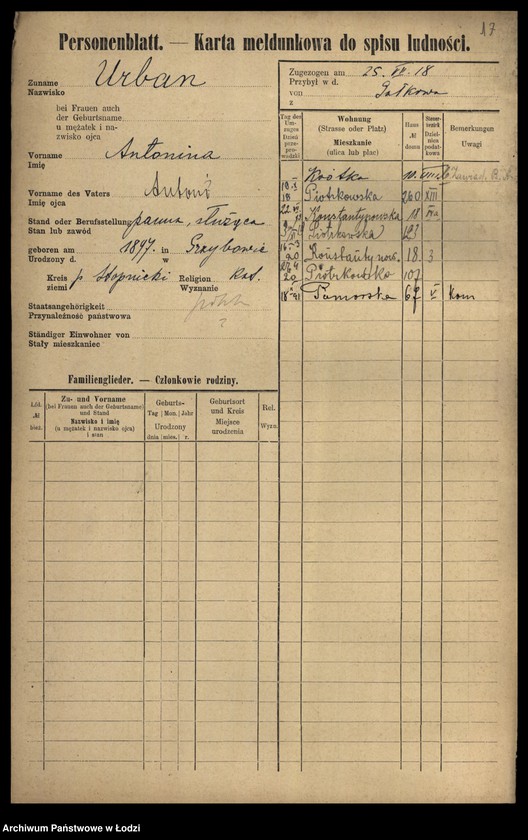 17
Personenblatt. — Karta meldunkowa do spisu ludności.
Zuname
Nazwisko
Urban
bei Frauen auch
der Geburtsname
u mężatek i na-
zwisko ojca
Vorname
Imię
Antonina
Vorname des Vaters
Imię ojca
Antoni
Stand oder Berufsstellung
Stan lub zawód
panna, służąca
geboren am 1897. in
Urodzony d. w
Kreis p Stopnicki Religion Kat.
ziemi Wyznanie
Staatsangehörigkeit
Przynależność państwowa
?
Ständiger Einwohner von
Stały mieszkaniec
Zugezogen am 25. VII. 18
Przybył w d.
von
z
Tag des
Um-
zuges
Dzień
prze-
pro-
wadzki
Wohnung
(Strasse oder Platz)
Mieszkanie
(ulica lub plac)
Haus
№
domu
Dziel-
nica
podat-
kowa
Bemerkungen
Uwagi
Piotrkowska 260 XIII
Konstantynowska 18
Piotrkowska 121
18. 3
Piotrkowska 107
Pomorska 67 V Kom
Familienglieder. — Członkowie rodziny.
Lfd.
№
bież.
Zu- und Vorname
(bei Frauen auch der Geburtsname)
und Stand
Nazwisko i imię
(u mężatek i nazwisko ojca)
i stan
Geburts-
Tag Mon. Jahr
Urodzony
dnia mies. r.
Geburtsort
und Kreis
Miejsce
urodzenia
Rel.
Wyzn.
Archiwum Państwowe w Łodzi